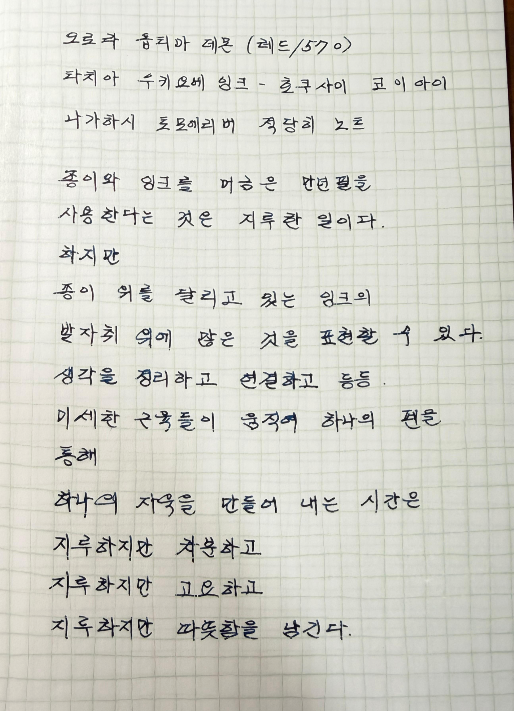 오로라 옵티마 데몬 (레드/570)
타치아 우키요에 잉크 - 호쿠사이 코이아이
나가하시 토모에리버 적당히 노트
종이와 잉크를 머금은 만년필을
사용한다는 것은 지루한 일이다.
하지만
종이 위를 달리고 있는 잉크의
발자취 위에 많은 것을 표현할 수 있다.
생각을 정리하고 연결하고 등등.
미세한 근육들이 움직여 하나의 펜을
통해
하나의 자욱을 만들어 내는 시간은
지루하지만 차분하고
지루하지만 고요하고
지루하지만 따뜻함을 남긴다.